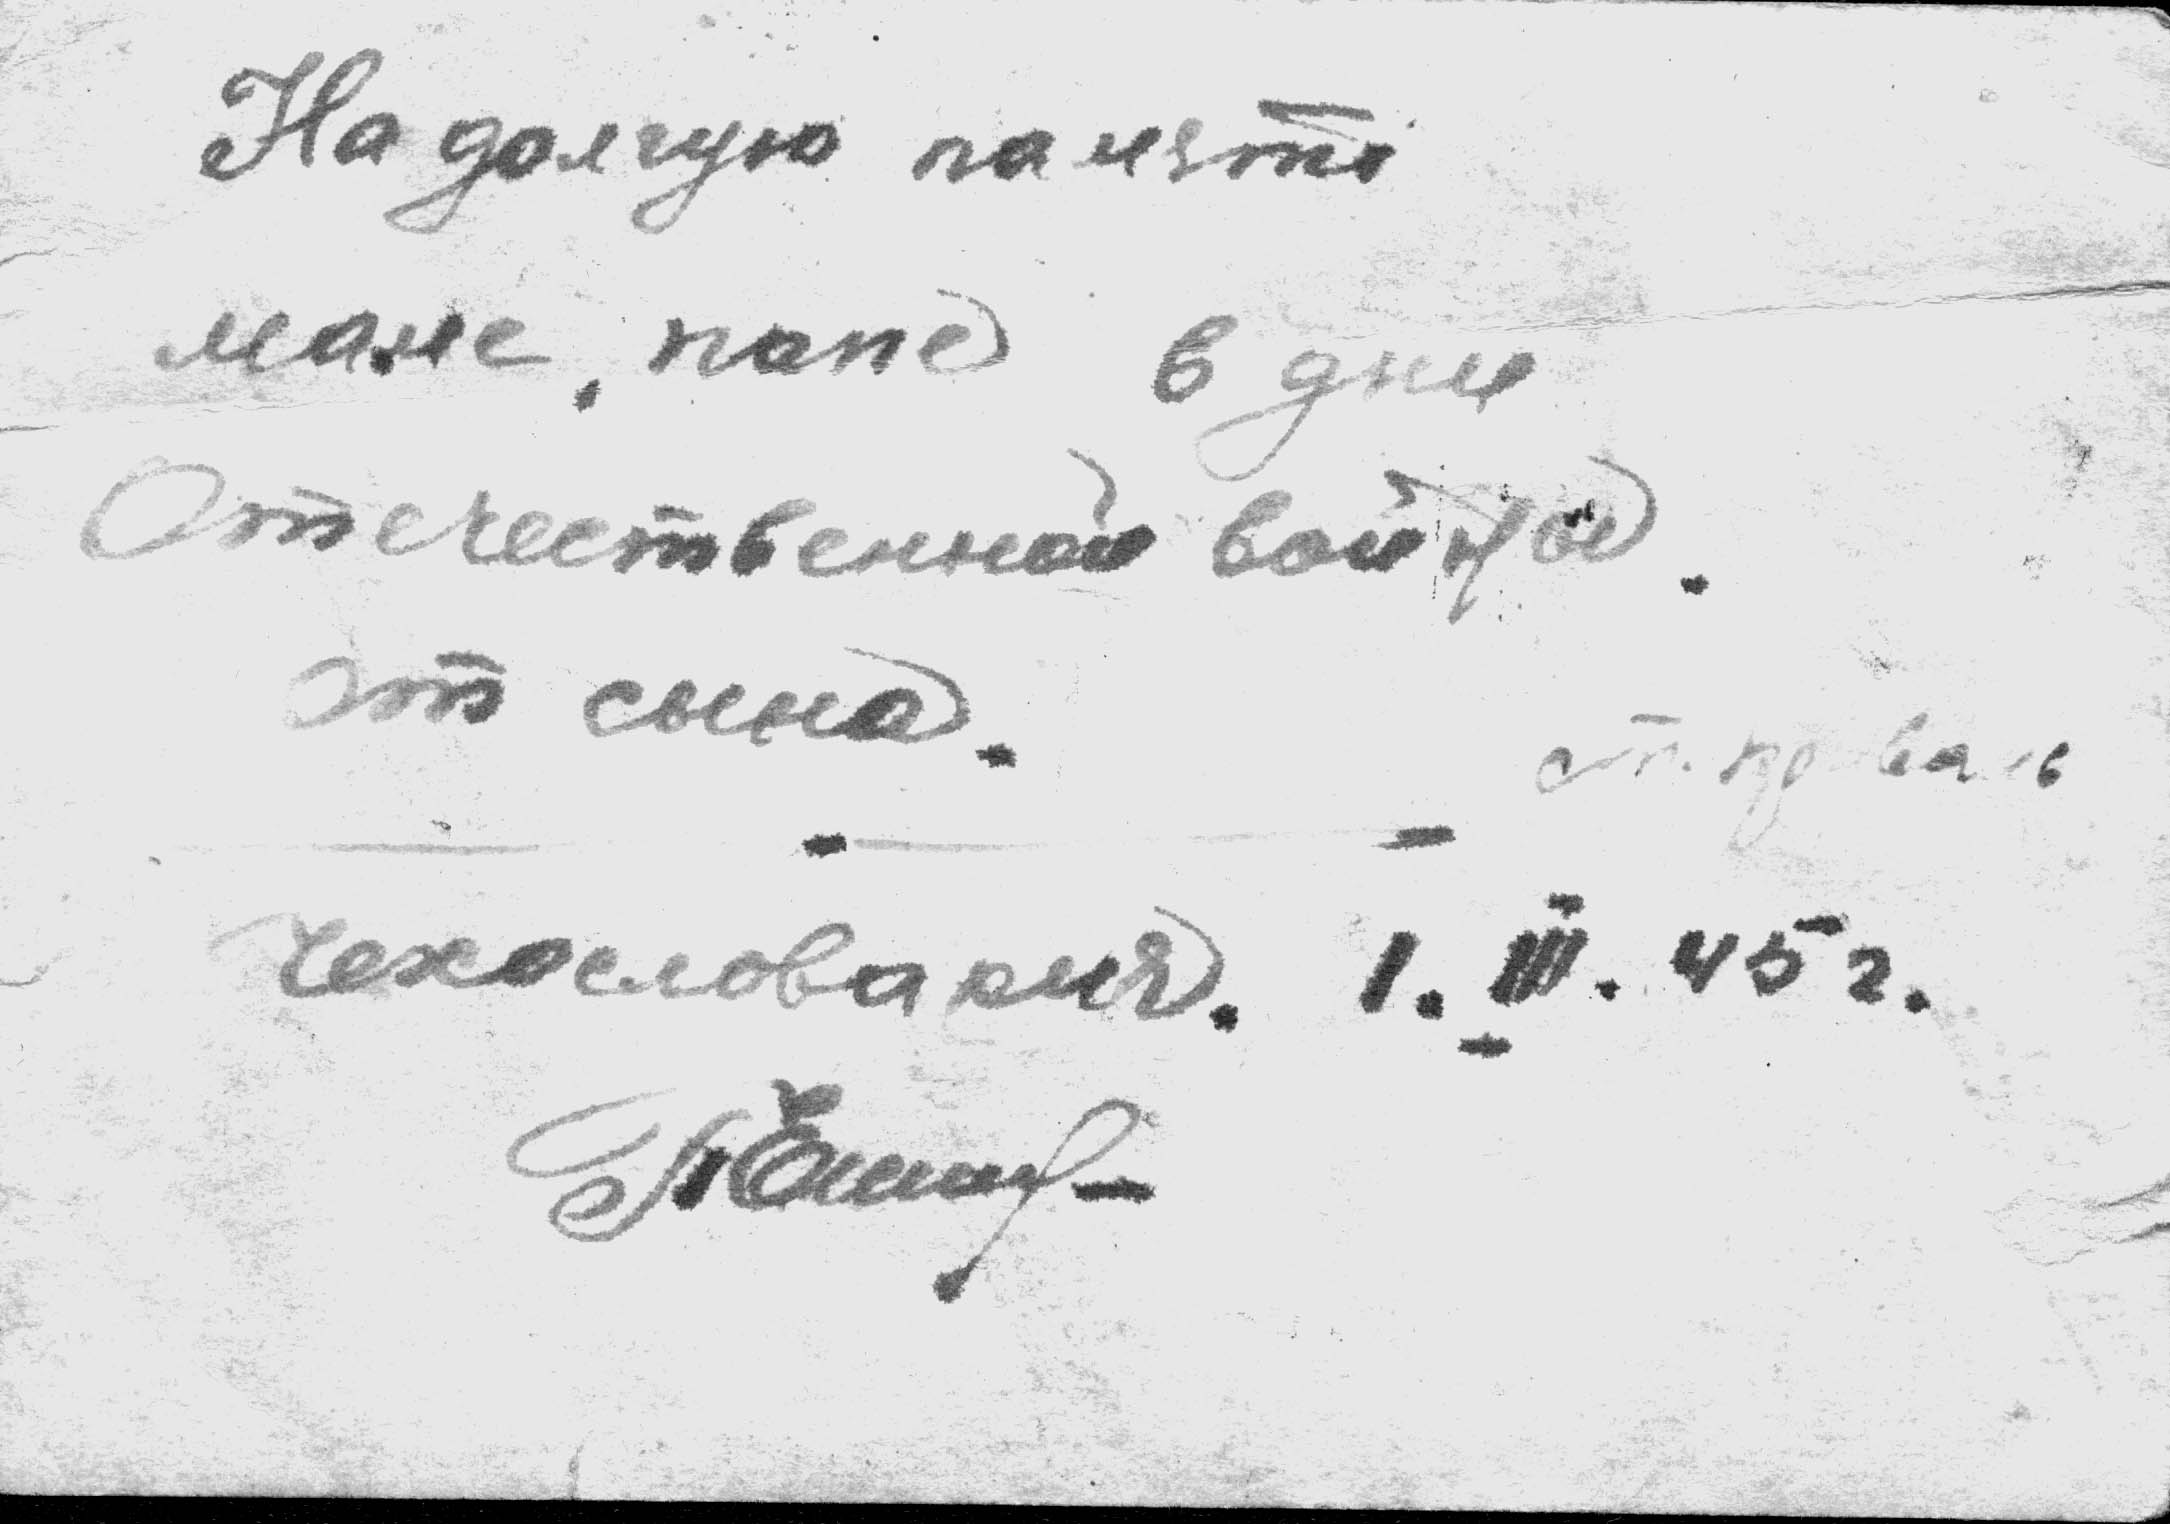 На долгую память
маме, папе в дни
Отечественной войной.
От сына.
Чехословакия. 1. III. 45 г.